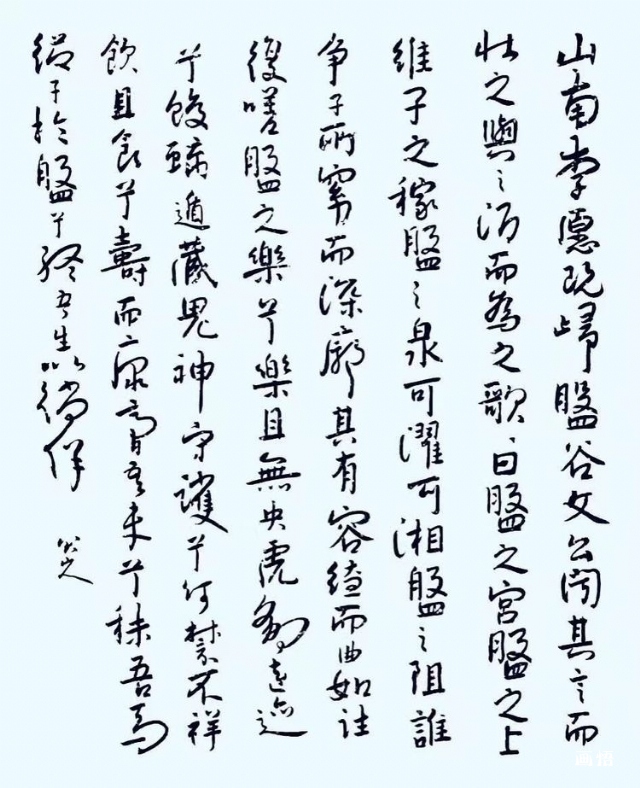 山南李愿既歸盤谷文公聞其言而
壯之與之酒而為之歌曰盤之宮盤之上
維子之稼盤之泉可濯可湘盤之阻誰
爭子所窈而深廓其有容繚而曲如往
復嗟盤之樂兮樂且無央虎豹遠迹
兮蛟螭遁藏鬼神守護兮呵禁不祥
飲且食兮壽而康膏吾車兮秣吾馬
從子於盤兮終吾生以徜徉
八大山人